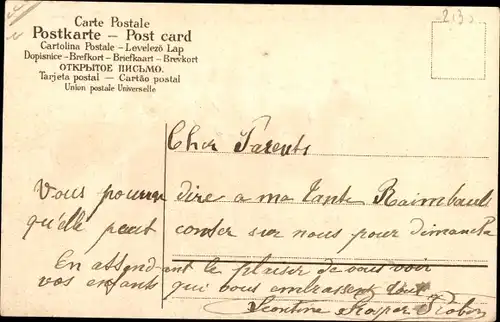 Carte Postale
Postkarte – Post card
Cartolina Postale – Levelező Lap
Dopisnice – Brefkort – Briefkaart – Brevkort
ОТКРЫТОЕ ПИСЬМО.
Tarjeta postal – Cartão postal
Union postale Universelle
213
Cher Parents
Vous pourrer dire a ma Tante Raimbault
qu'elle peut conter sur nous pour dimanche
En attendant le plaisir de vous voir
vos enfants qui vous embrassent tout
Leontine Robin